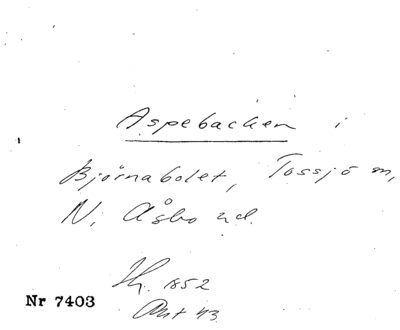 Aspebacken i
Björnabolet, Tossjö m,
N. Åsbo hd.
Hy. 1852
Akt 43.
Nr 7403